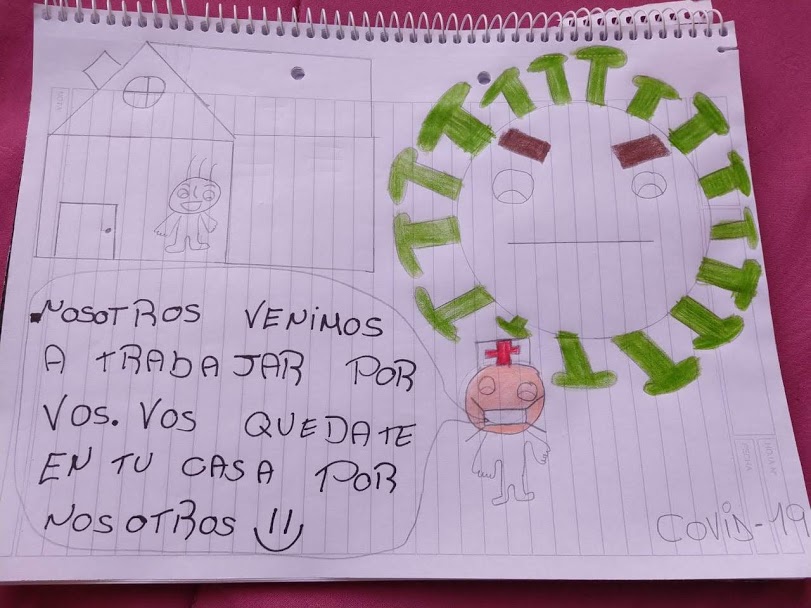 NOSOTROS VENIMOS
A TRABAJAR POR
VOS. VOS QUEDATE
EN TU CASA POR
NOSOTROS
COVID-19